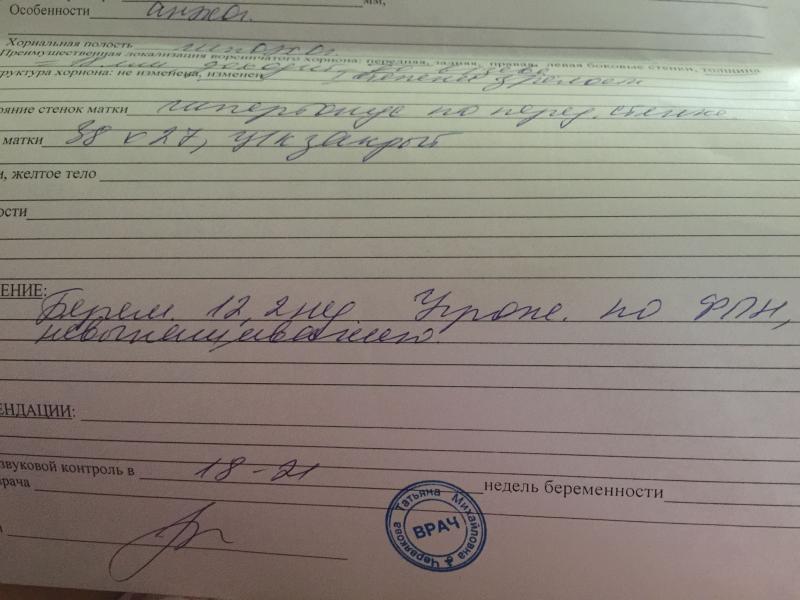 мм,
Особенности анэхог.
Хориальная полость гипоэхог.
Преимущественная локализация ворсинчатого хориона: передняя, задняя, правая, левая боковые стенки, толщина
= 18 мм
руктура хориона: не изменена, изменен
ояние стенок матки гипертонус по перед. стенке.
матки 38 х 27, ц/к закрыт
и, желтое тело
ости
ЕНИЕ:
Берем. 12,2 нед. Угрож. по ФПН,
невынашиванию.
ЕНДАЦИИ:
звуковой контроль в 18-21 недель беременности
врача
Червякова Татьяна Михайловна
ВРАЧ